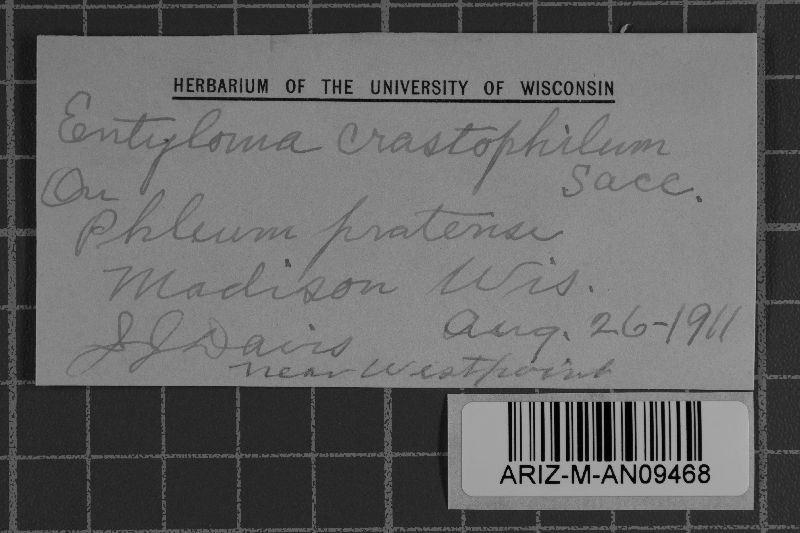 HERBARIUM OF THE UNIVERSITY OF WISCONSIN
Entyloma crastophilum
Sacc.
On
Phleum pratense
Madison Wis.
Aug. 26-1911
J J Davis
near Westpoint
ARIZ-M-AN09468